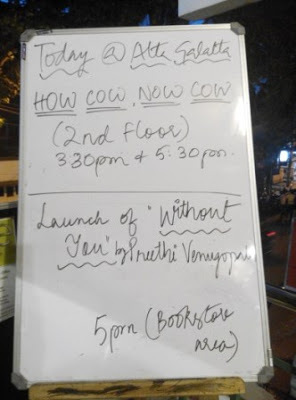 Today @ Atta Galatta
HOW COW, NOW COW
(2nd Floor)
3:30pm & 5:30pm.
Launch of "Without
You" by Preethi Venugopal
5pm (Bookstore
area)